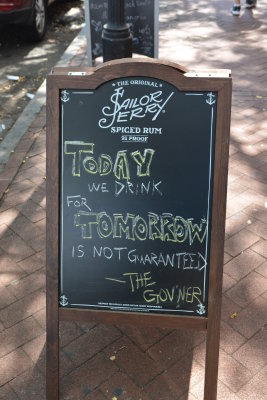 ★ THE ORIGINAL ★
SAILOR
JERRY
SPICED RUM
92 PROOF
TODAY
WE DRINK
FOR
TOMORROW
IS NOT GUARANTEED
—THE
GOV'NER